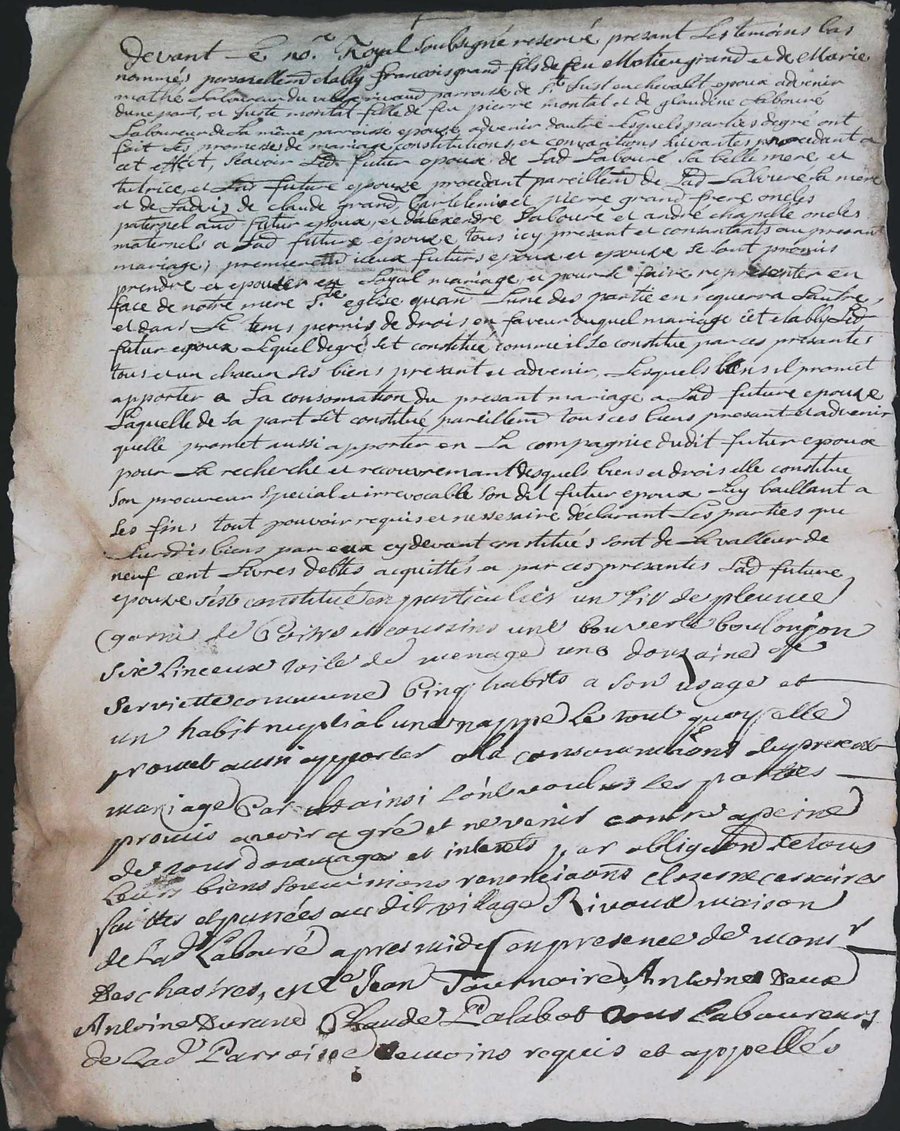 devant le no.re Royal soubsigné reservé presant Les temoins bas
nommés personellemt etably francois grand fils de feu Matieu grand et de Marie
mathé Laboureur du village rivaud parroise de St Just en chevalet epoux advenir
dune part, et Juste montat fille de feu pierre montat et de glaudine Laboure
Laboureur de la même parroisse epouse advenir dautre Lesquels parties degré ont
fait Les promesses de mariage constitutions et conventions suivantes procedant a
cet effet, scavoir Led futur epoux de Lad Laboure sa belle mere et
tutrice et Lad future epouse procedant pareillemt de Lad Laboure sa mere
et de Ladvis de claude grand Bartelemi et pierre grand frere oncles
paternel aud futur epoux, et dalexendre Laboure et andré chapelle oncles
maternels a Lad future epouse tous icy present et consantants au presant
mariage, premieremt iceux futurs epoux et epouse se sont prómis
prendre et epouser en Loyal mariage et pour se faire representer en
face de notre mere Ste eglise quan Lune des partie en requerra Lautre,
et dans Le tems permis de drois en faveur duquel mariage cet etably Led
futur epoux Lequel degré set constitué comme il se constitue par ces presantes
tous et un chacun ses biens presant et advenir, Lesquels biens il promet
apporter a La consomation du presant mariage a Lad future epouse
Laquelle de sa part set constitué pareillemt tous ces biens presant et advenir
quelle promet aussi apporter en La compagnie dudit futur epoux
pour La recherche et recouvremant desquels biens et drois elle constitue
son procureur special et irrevocable son dit futur epoux Luy baillant a
ses fins tout pouvoir requis et nessesaire declarant Les parties que
Leursdis biens par eux cy devant constitués sont de La valleur de
neuf cent Livres debtes acquittés et par ces presantes Lad future
epouse sest constituée en particulier un Lit de pleume
garni de et coussins une
six linceux toile de menage une douzaine de
serviette commune Cinq habits a son usage et
un habit nuptiàl une nappe Le tout quoy elle
promet aussi apporter a la consommations du present
mariage Car ainsi Lont voulu les parties
promis avoir a gré et ne venir contre a peine
de tous dommages et interets par obligaon de tous
Leurs biens soumissions renonciaons clozes necessaires
faittes et passées au dit village Rivaux maison
de Lad Labouré apres midy en presence de monsr
Des chastres, et de Jean Antoine
Antoine Durand Claude Palabot tous Laboureurs
de Lad Parroisse temoins requis et appellés